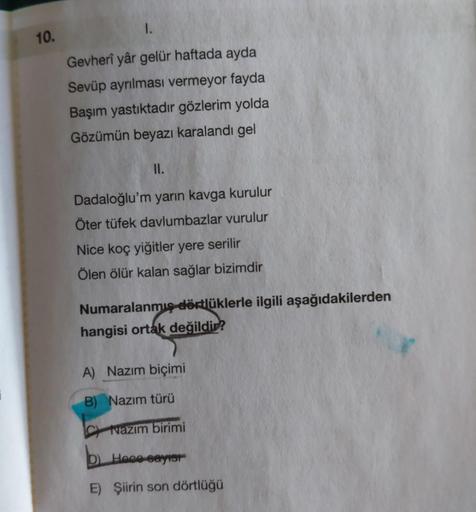 10.
I.
Gevherî yâr gelür haftada ayda
Sevüp ayrılması vermeyor fayda
Başım yastıktadır gözlerim yolda
Gözümün beyazı karalandı gel
II.
Dadaloğlu'm yarın kavga kurulur
Öter tüfek davlumbazlar vurulur
Nice koç yiğitler yere serilir
Ölen ölür kalan sağlar bizimdir
Numaralanmış dörtlüklerle ilgili aşağıdakilerden
hangisi ortak değildir?
A) Nazım biçimi
B) Nazım türü
C) Nazım birimi
D) Hece sayısı
E) Şiirin son dörtlüğü